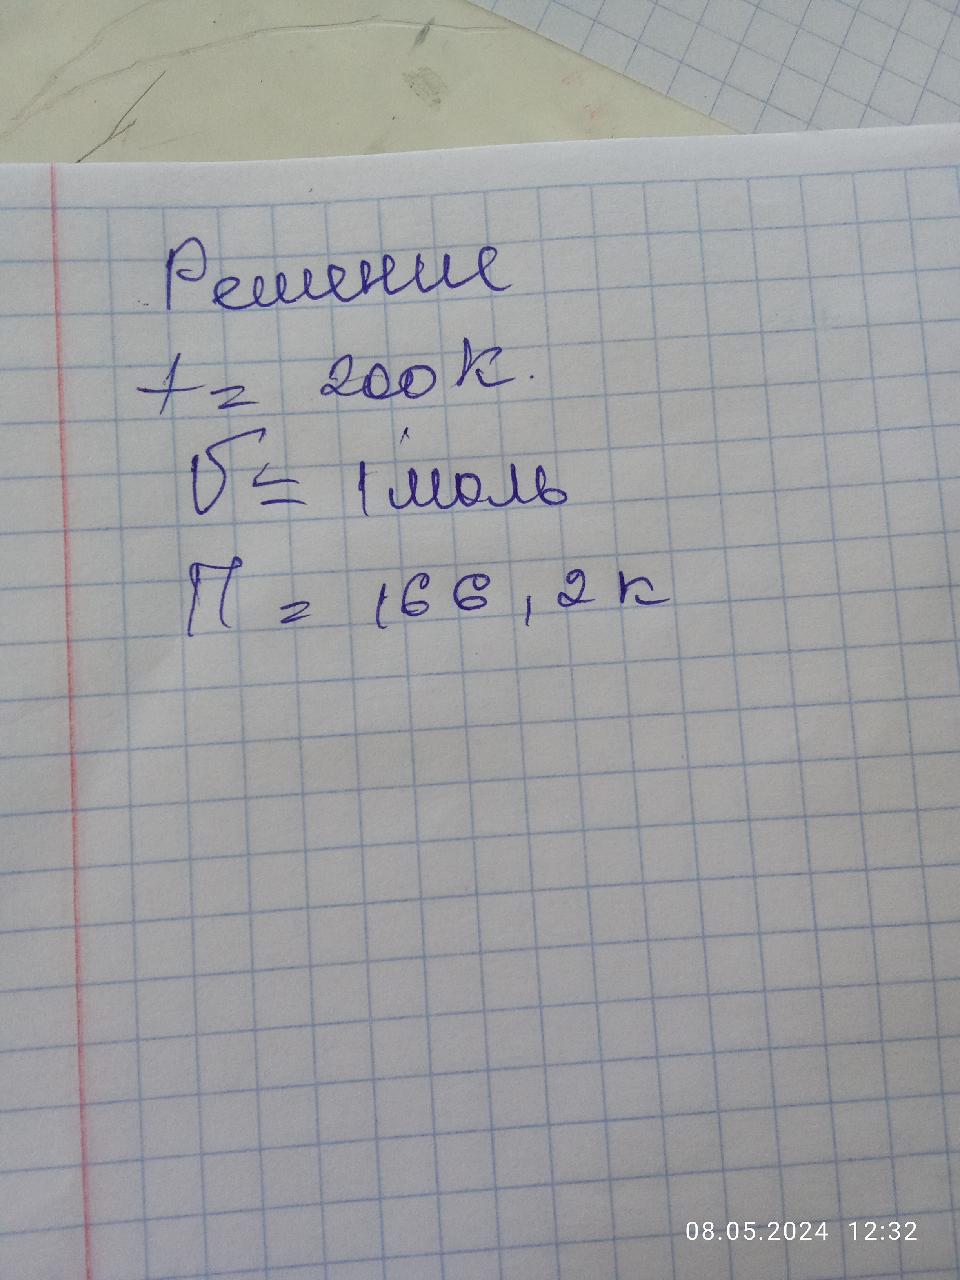 Решение
t = 200 К.
V = 1 моль
П = 166,2 к
08.05.2024 12:32